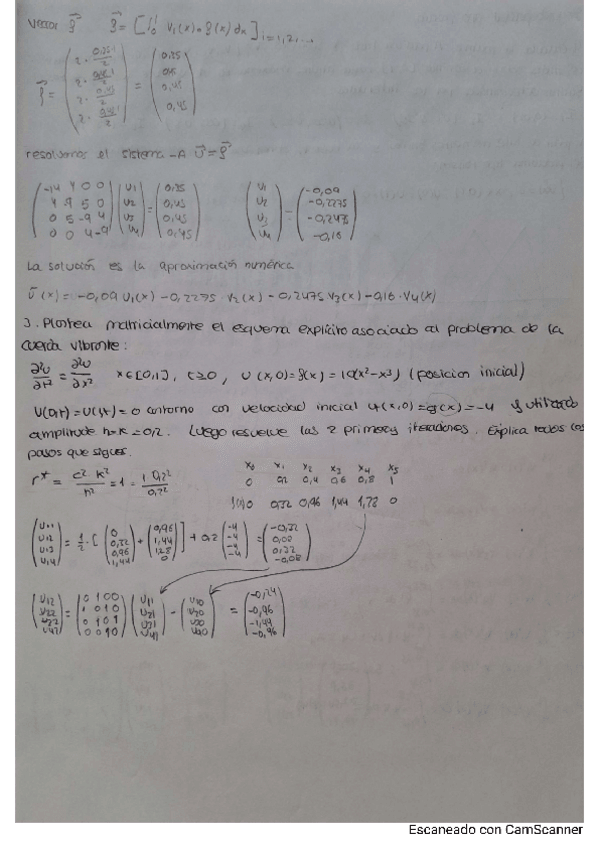 vector ρ⃗ ρ⃗ = [∫₀¹ v₁(x)·ρ(x)dx] i=1,2,...
ρ⃗ = = (0,25 0,45 0,45 0,45)
resolvemos el sistema -A u⃗ = ρ⃗
(-14 4 0 0 / 4 9 5 0 / 0 5 -9 4 / 0 0 4 -9) (u₁ u₂ u₃ u₄) = (0,25 0,45 0,45 0,45) (u₁ u₂ u₃ u₄) = (-0,09 -0,2275 -0,2475 -0,16)
La solución es la aproximación numérica
ũ(x) = -0,09 v₁(x) -0,2275 v₂(x) -0,2475 v₃(x) -0,16·v₄(x)
3. Plantea matricialmente el esquema explícito asociado al problema de la
cuerda vibrante:
∂²u/∂t² = ∂²u/∂x² x∈[0,1], t≥0, u(x,0)=f(x)=10(x²-x³) (posicion inicial)
u(0,t)=u(1,t)=0 contorno con velocidad inicial ut(x,0)=g(x)=-4 y utilizando
amplitude h=k=0,2. Luego resuelve las 2 primeras iteraciones. Explica todos los
pasos que sigues.
x₀ x₁ x₂ x₃ x₄ x₅
r* = c² k²/h² = 1 = 1·0,2²/0,2² 0 0,2 0,4 0,6 0,8 1
0 0,32 0,96 1,44 1,28 0
(u₁₁ u₁₂ u₁₃ u₁₄) = 1/2·[(0 0,32 0,96 1,44) + (0,96 1,44 1,28 0)] + 0,2 (-4 -4 -4 -4) = (-0,32 0,08 0,32 -0,08)
(u₁₂ u₂₂ u₃₂ u₄₂) = (0 1 0 0 / 1 0 1 0 / 0 1 0 1 / 0 0 1 0) (u₁₁ u₂₁ u₃₁ u₄₁) - (u₁₀ u₂₀ u₃₀ u₄₀) = (-0,24 -0,96 -1,44 -0,96)
Escaneado con CamScanner